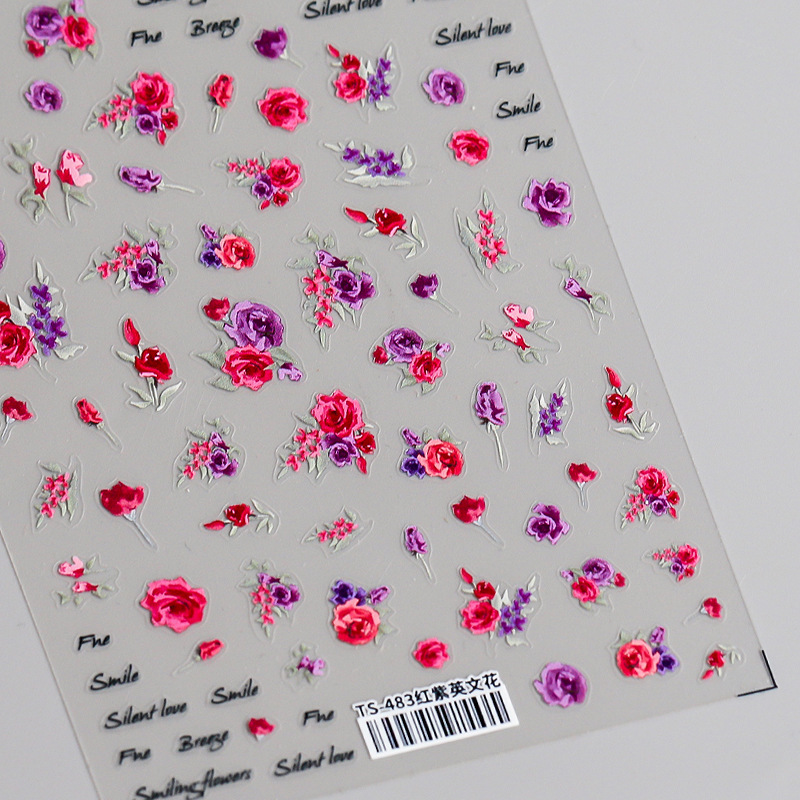 Silent love
Fne
Breeze
Silent love
Fne
Smile
Fne
Fne
Smile
Silent love
Smile
Fne
Breeze
Fne
Smiling flowers
Silent love
TS-483红紫英文花